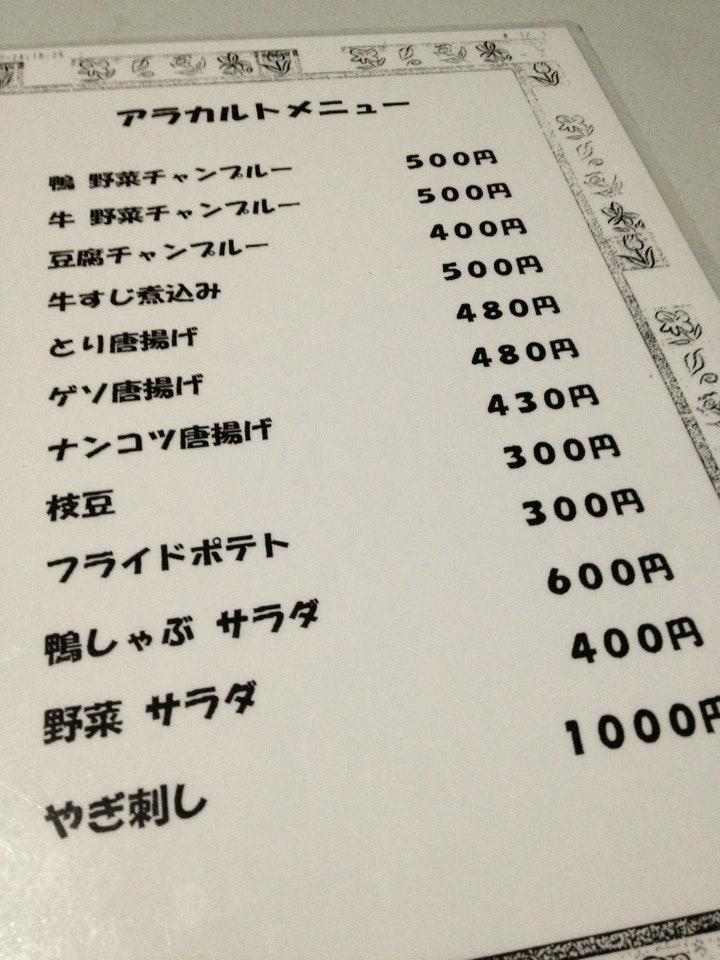 アラカルトメニュー
鴨 野菜チャンプルー 500円
牛 野菜チャンプルー 500円
豆腐チャンプルー 400円
牛すじ煮込み 500円
とり唐揚げ 480円
ゲソ唐揚げ 480円
ナンコツ唐揚げ 430円
枝豆 300円
フライドポテト 300円
鴨しゃぶ サラダ 600円
野菜 サラダ 400円
やぎ刺し 1000円